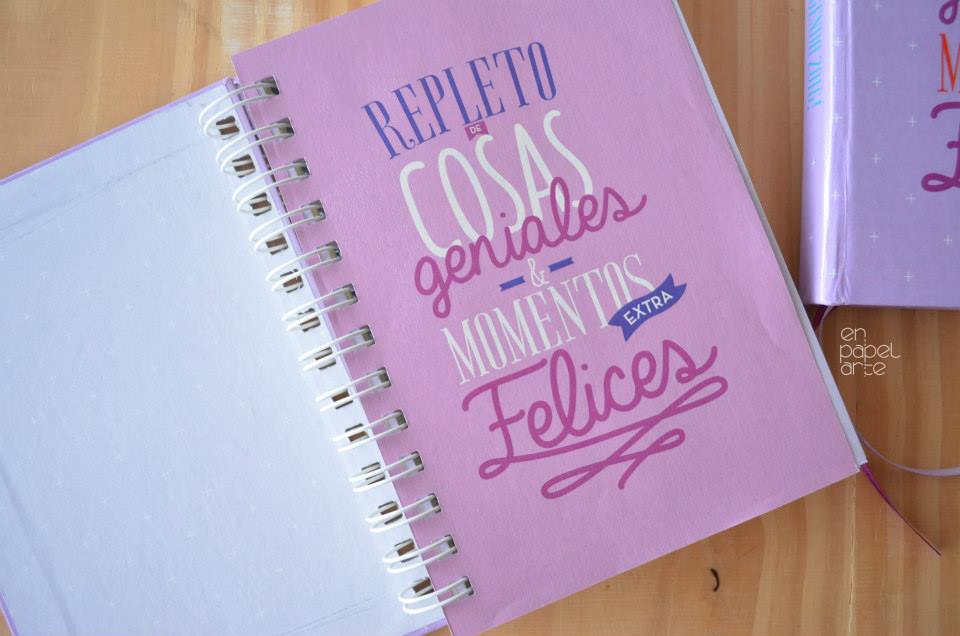 REPLETO
DE
COSAS
geniales
&
MOMENTOS
EXTRA
Felices
en
papel
arte